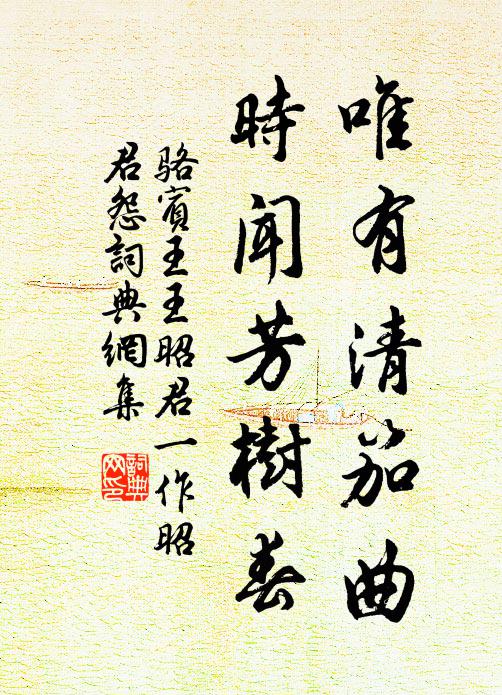 唯有清笳曲
時聞芳樹春
駱賓王王昭君一作昭
君怨詞典網集
詞典
网印